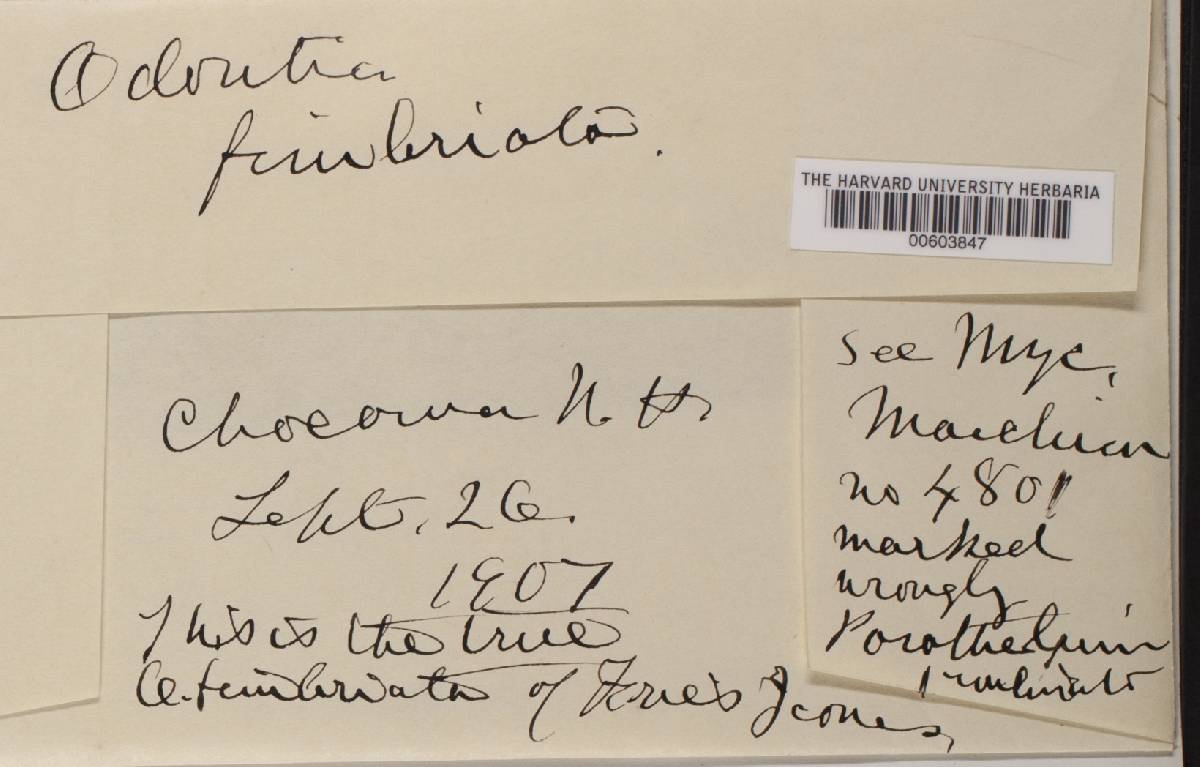 Odontia
fimbriata.
THE HARVARD UNIVERSITY HERBARIA
00603847
Chocorua N. H.
Sept. 26.
1907
This is the true
O. fimbriata of Fries Icones,
see Myc.
Marchian
no 4801
marked
wrongly
Porothelium
fimbriato